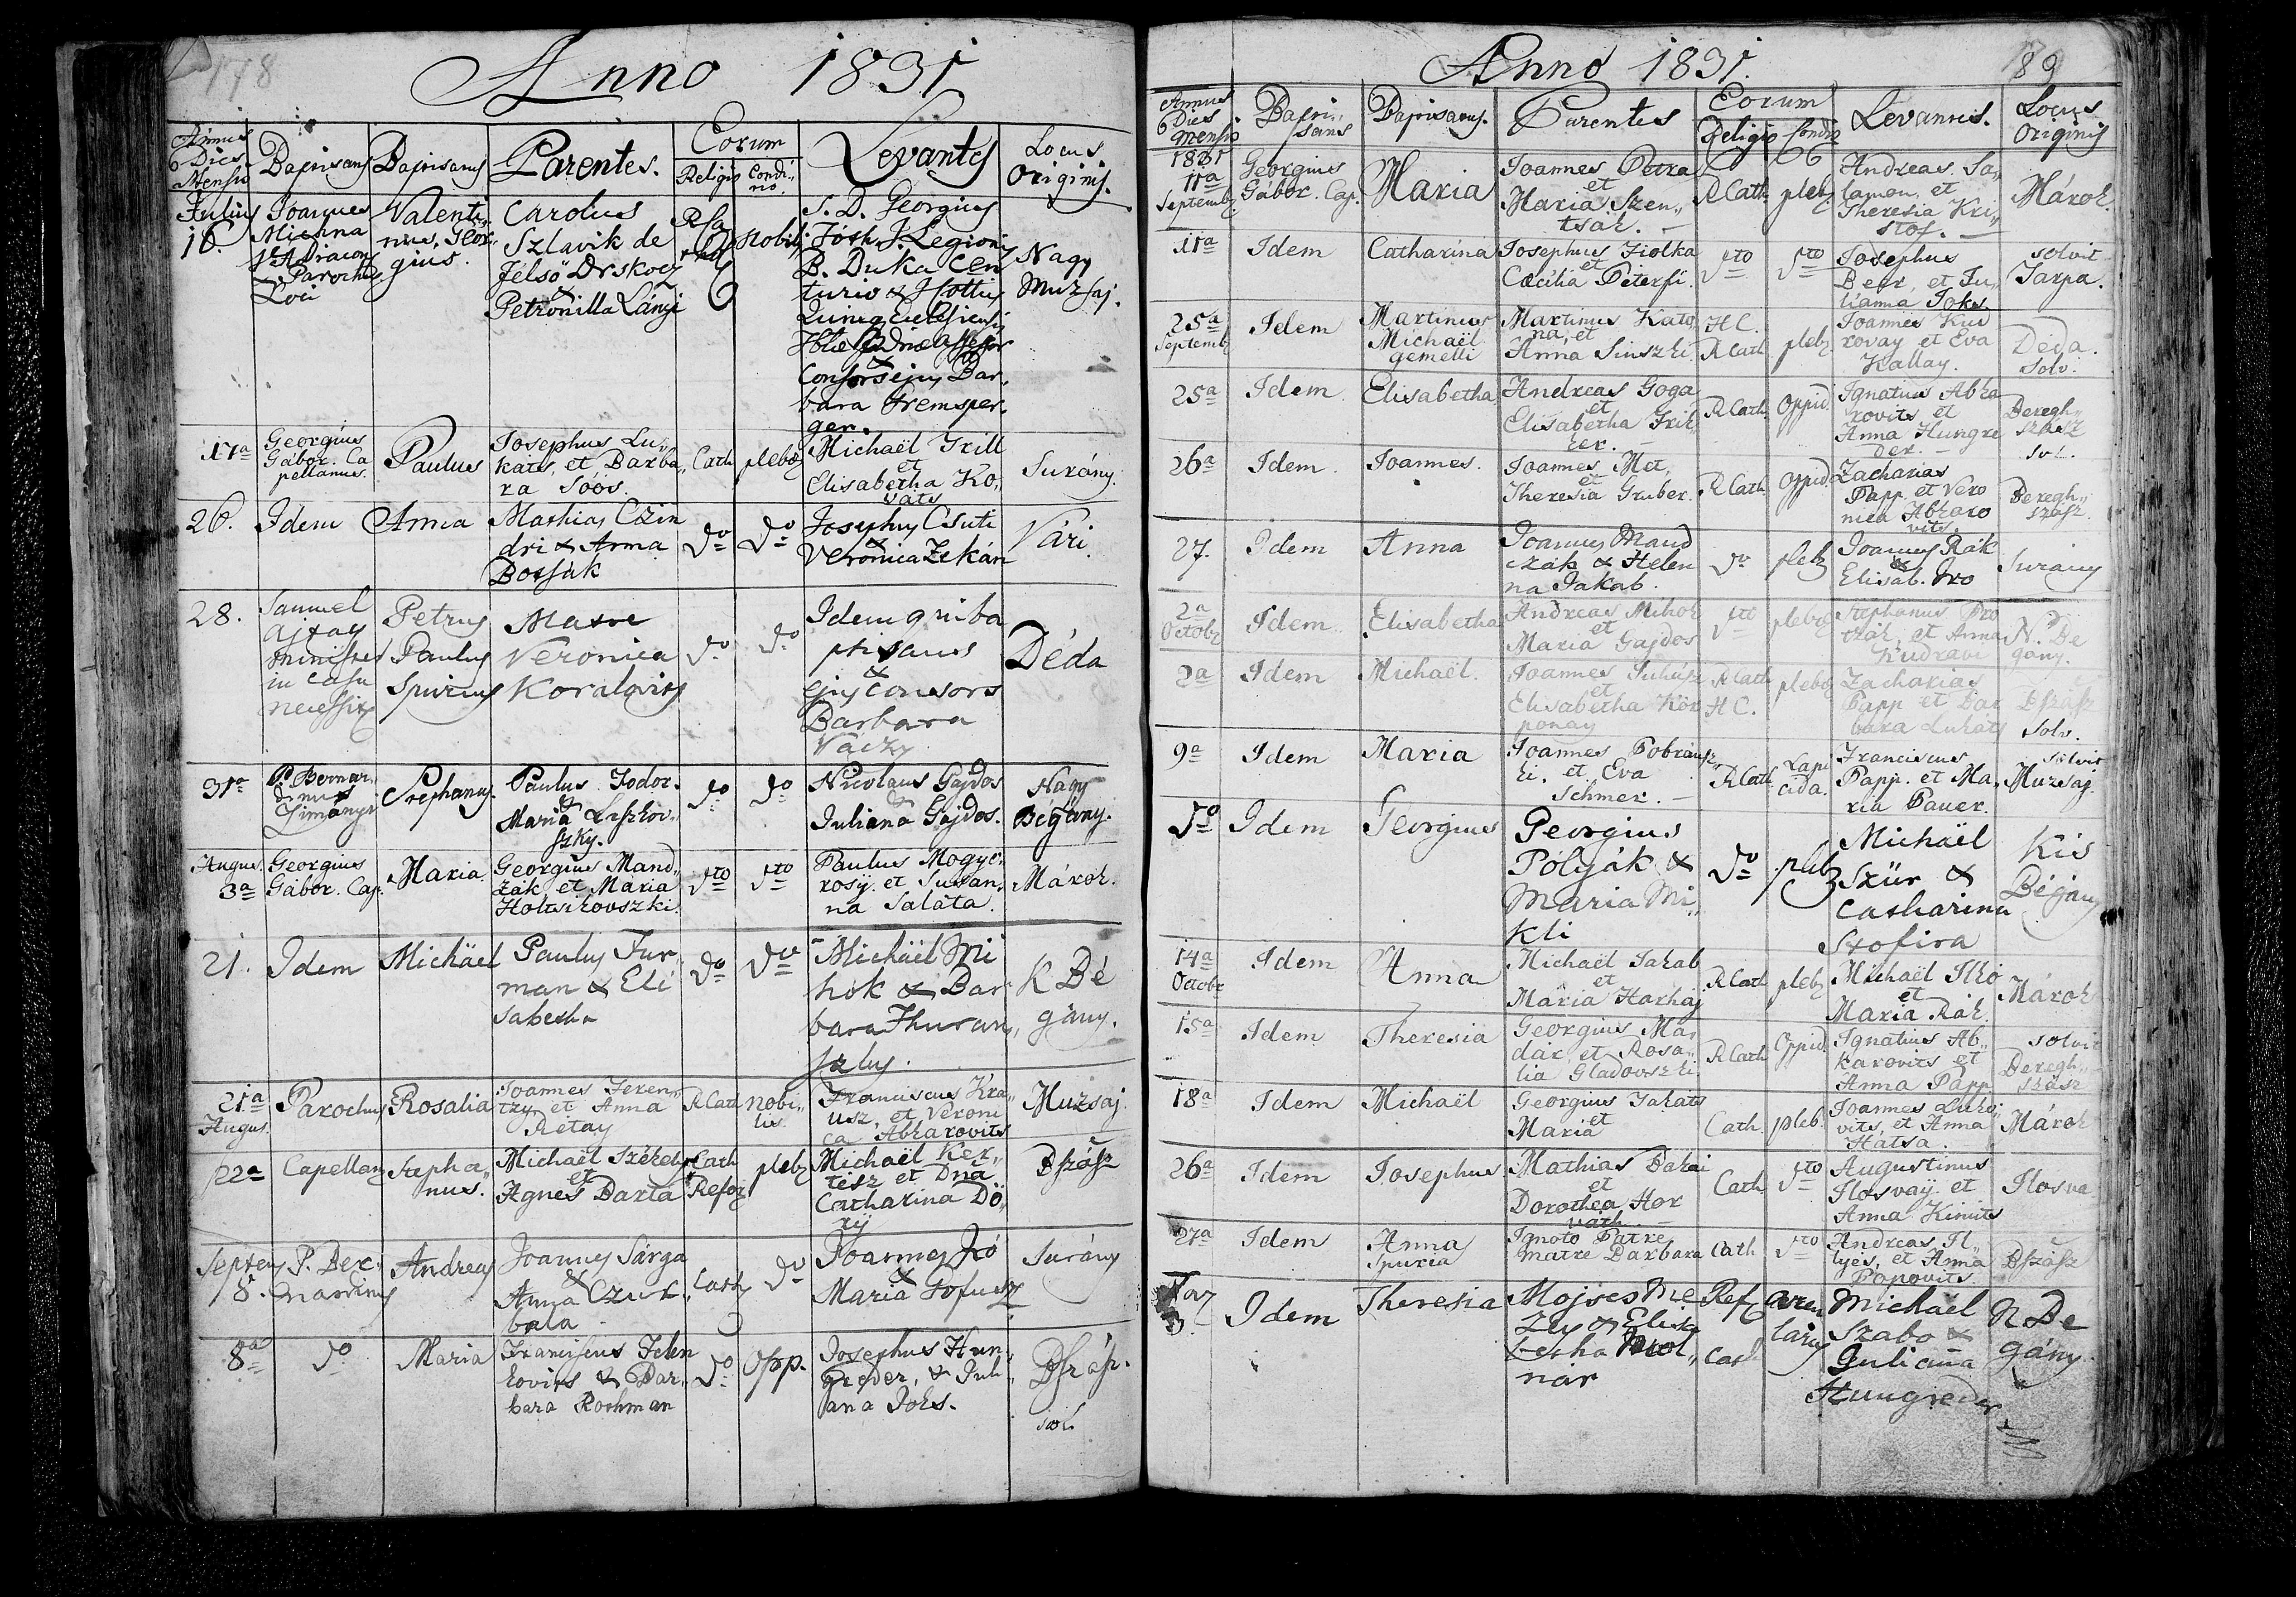 178
Anno 1831
Annus
Dies
Mensis
Baptisans
Baptisatus
Parentes.
Eorum
Religio
Condi„
tio.
Levantes
Locus
Originis.
Julius
16.
Joannes
Michna
Parochus
Loci
Valenti„
nus, Geor„
gius.
Carolus
Szlavik de
Felsö Drskocz
&
Petronilla Lányi
Nobil
S. D. Georgius
B. Duka Cen
turio &
Consors ejus Bar„
bara Fremsper„
ger.
Nagy
Muzsaj.
17a
Georgius
Gábor. Ca
pellanus.
Paulus
Josephus Lu„
káts, et Barba„
ra Soós.
Cath
plebz
Michaël Grill
et
Elisabetha Ko„
váts
Surány.
26.
Idem
Anna
Mathias Czin
dri & Anna
Bossák
do
do
Josephus Csuti
&
Veronica Zekán
Vári.
28.
Samuel
Ajtay
minister
in casu
necessit
Petrus
Paulus
Spurius
Matre
Veronica
Koralovits
do
do
Idem qui ba
ptisans
&
ejus Consors
Barbara
Váczy
Déda
31a
P. Bernar„
dinus
Simányi
Stephanus
Paulus Fodor.
&
Maria Liszkov„
szky.
do
do
Nicolaus Gajdos
&
Juliana Gajdos.
Nagy
Bégány.
Augus.
3a
Georgius
Gábor. Cap.
Maria
Georgius Mand„
zák et Maria
Holtsikovszki.
dto
dto
Paulus Mogyó„
rosÿ. et Susan„
na Saláta.
Márok.
21.
Idem
Michäel
Paulus Fur
man & Eli
sabetha
do
do
Michäel Mi
hók & Bar
bara Thuran„
szky.
K Bé
gány.
21a
Augus.
Parochus
Rosalia
Joannes Feren„
tzy et Anna
Rétay
R Cath
nobi„
lis
Franciscus Kra„
usz, et Veroni
ca Abkarovits
Muzsaj
22a
Capellanus
Stepha„
nus.
Michaël Székely
et
Agnes Barta
Cath
Refor
plebz
Michaël Ker„
tész et Dna
Catharina Dö„
rÿ
Bszász
Septem
8.
P. Ber„
nardinus
Andreas
Joannes Sárga
&
Anna Czur„
bala
Cath
do
Joannes Iró
&
Maria Gofusz
Surány
8a
do
Maria
Franciscus Felen
kovits & Bar„
bara Rochman
do
Opp.
Josephus Hun„
greder, & Juli
ana Joks.
Bszász.
sol.
Anno 1831.
89
Annus
Dies
Mensis
Bapti„
sans
Baptisatus.
Parentes
Eorum
Religio
Condio
Levantes.
Locus
Originis
1831
11a
Septembr
Georgius
Gábor. Cap.
Maria
Joannes Petra
et
Maria Szen„
tsák. —
R Cath
plebz
Andreas Sa„
lamon, et
Theresia Kri„
stof. —
Márok.
11a
Idem
Catharina
Josephus Fiolka
et
Cæcilia Péterfi.
dto
dto
Josephus
Beer, et Ju„
lianna Joks
solvit
Tarpa.
25a
Septemb
Idem
Martinus
Michaël
gemelli
Martinus Kato„
na, et
Anna Siuszki
H C.
R Cath
plebz
Joannes Kud
rovay et Eva
Kallay.
Déda.
Solv.
25a
Idem
Elisabetha
Andreas Goga
et
Elisabetha Frik„
ker. —
R Cath
Oppid.
Ignatius Abka
rovits et
Anna Hungre
der. —
Beregh„
szász
Sol.
26a
Idem.
Joannes.
Joannes Met„
et
Theresia Gruber.
R Cath.
Oppid.
Zacharias
Papp. et Vero
nica Abkaro
vits
Beregh„
szász.
27.
Idem
Anna
Joannes Mand
czák & Helen
na Jakab.
do
plebz
Joannes Rák
&
Elisab. Iro
Surány
2a
Octobr
Idem
Elisabetha
Andreas Mihok
et
Maria Gajdos
dto
plebz
Stephanus Pro
tzák, et Anna
Kudravi
N. Be
gány.
2a
Idem
Michaël.
Joannes Juhász
et
Elisabetha Kör
ponay
R Cath
H C.
plebz
Zacharias
Papp et Bar
bara Lukats
Bszász
Solv.
9a
Idem
Maria
Joannes Pobránsz„
ki. et Eva
Schmer. —
R Cath
Lapi
cida.
Franciscus
Papp. et Ma„
ria Pauer.
Solvit
Muzsaj.
do
Idem
Georgius
Georgius
Polyák &
Maria Mi„
kli
do
plebz
Michäel
Szür &
Catharina
Stofira
Kis
Bégány
14a
Octobr
Idem
Anna
Michaël Jakab
et
Maria Harhaj
R Cath
plebz
Michaël Ilko
et
Maria Rák.
Márok
15a
Idem
Theresia
Georgius Ma„
dár, et Rosa„
lia Gladovszki
R Cath
Oppid.
Ignatius Ab„
karovits et
Anna Papp
solvit
Beregh„
szász
18a
Idem
Michaël
Georgius Takáts
et
Maria
Cath.
pleb.
Joannes Luko„
vits, et Anna
Hatsa.
Márok
26a
Idem
Josephus
Mathias Bakai
et
Dorothea Hor
váth. —
Cath
dto
Augustinus
Ilosvaÿ et
Anna Kimits
Ilosva
27a
Idem
Anna
Spuria
Ignoto Patre
matre Barbara
Cath
dto
Andreas Il„
lyes, et Anna
Papovits
Bszász
3.
Idem
Theresia
Mojses Me
zey & Elisa
betha Mol„
nár
Ref
Cath
Michael
Szabo &
Juliana
Hungreder
N Be
gány